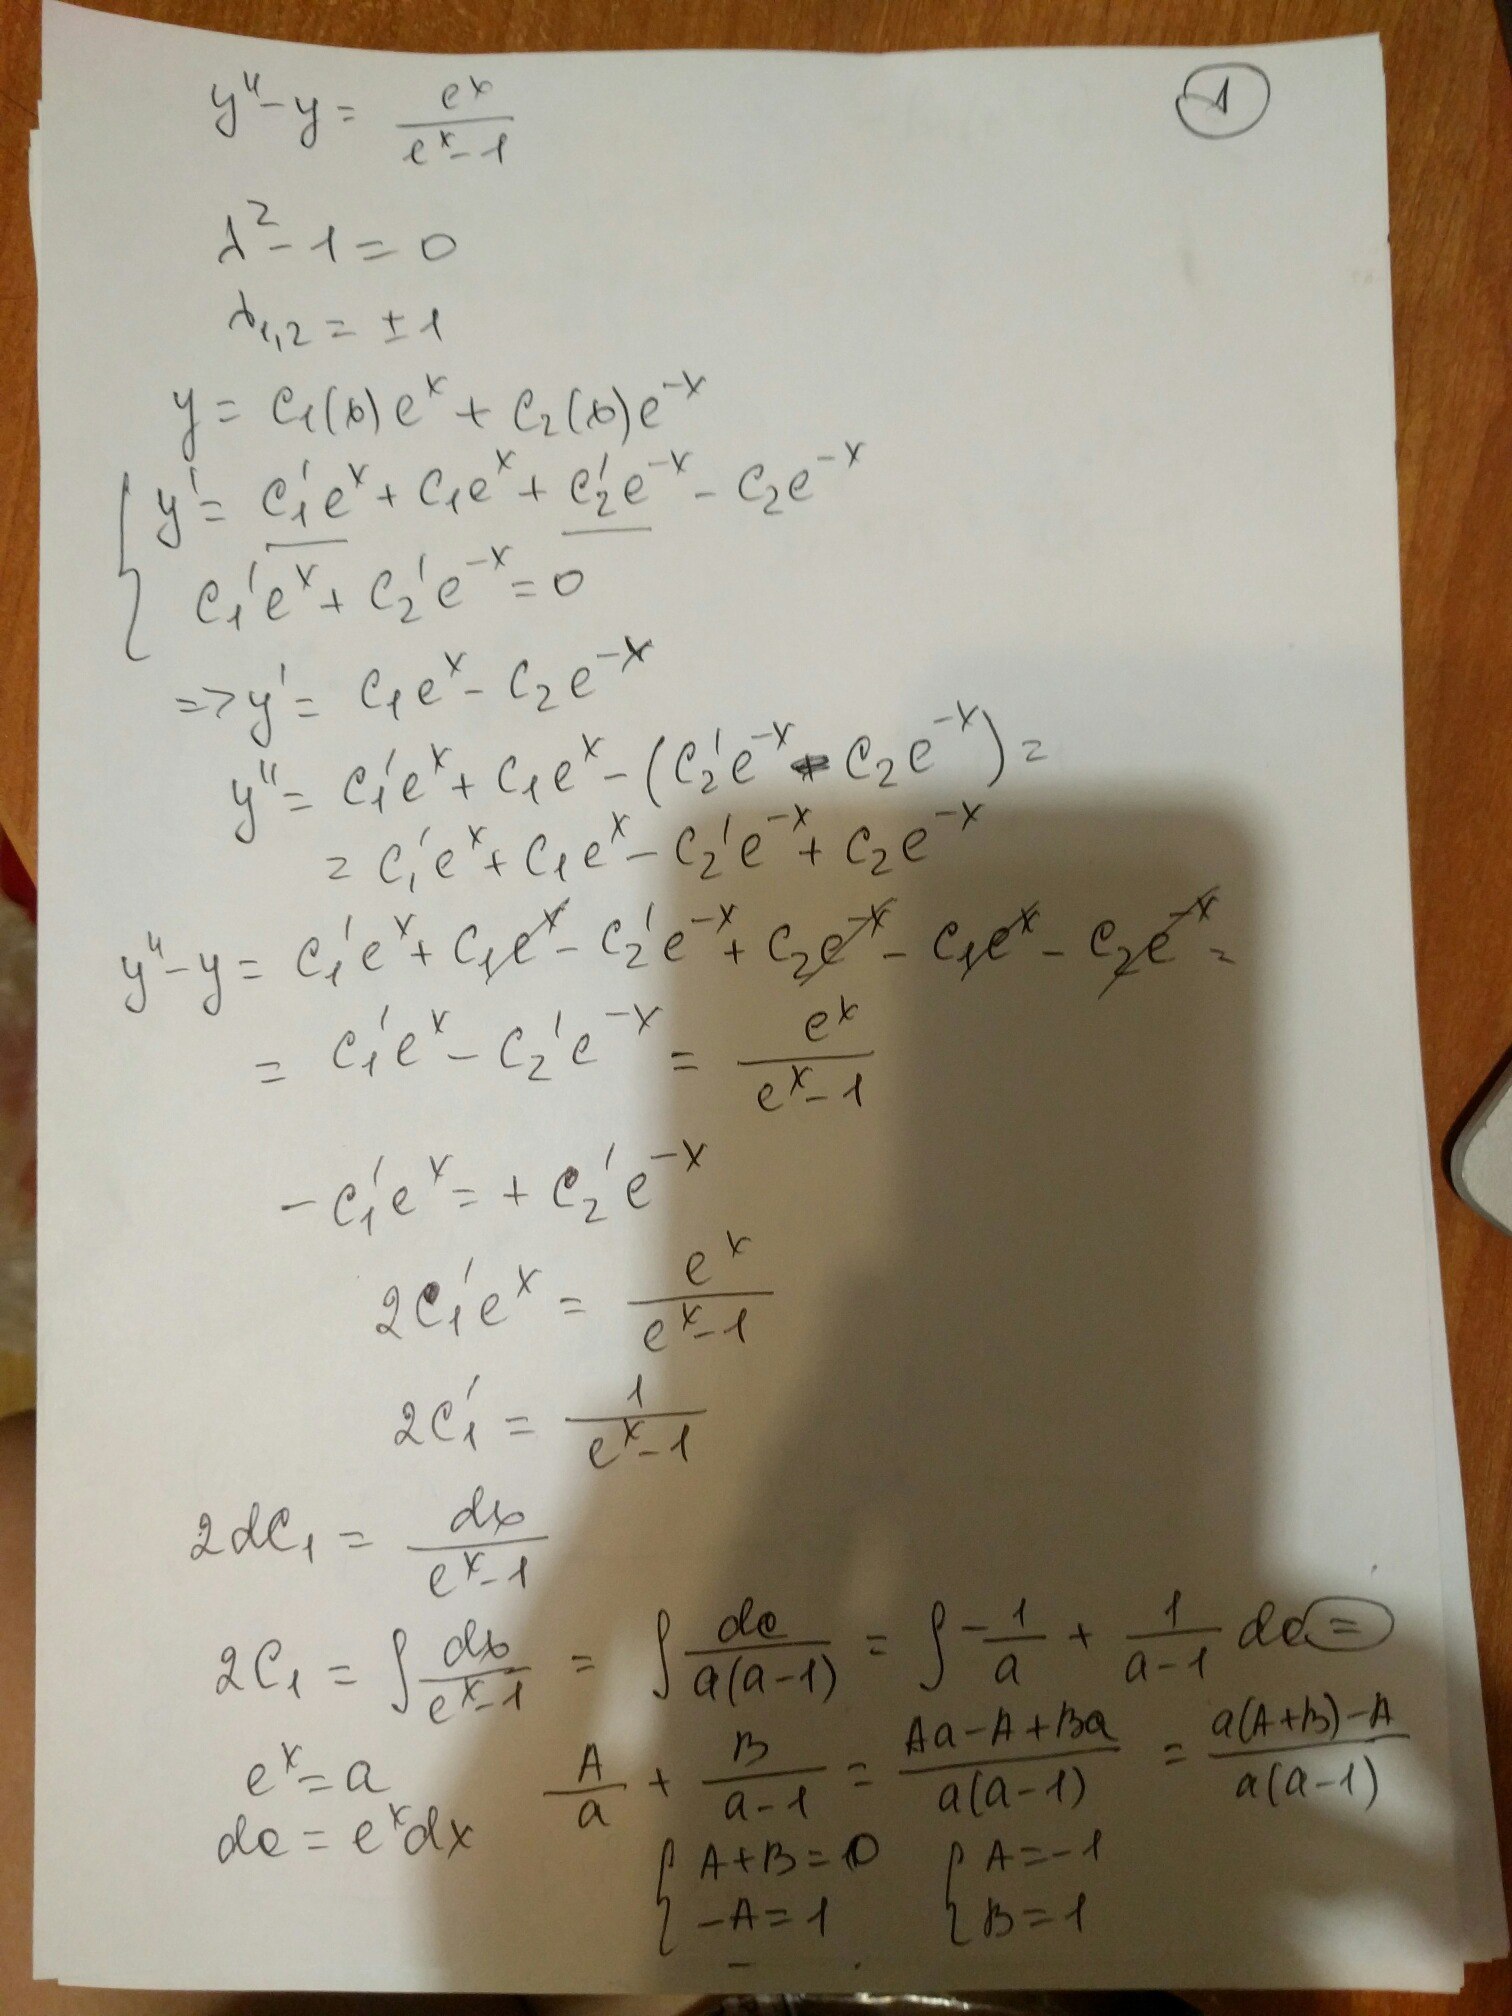 ①
y'' - y = e^x / (e^x - 1)
λ² - 1 = 0
λ₁,₂ = ± 1
y = C₁(x) e^x + C₂(x) e^-x
{ y' = C₁' e^x + C₁ e^x + C₂' e^-x - C₂ e^-x
C₁' e^x + C₂' e^-x = 0
=> y' = C₁ e^x - C₂ e^-x
y'' = C₁' e^x + C₁ e^x - (C₂' e^-x - C₂ e^-x) =
= C₁' e^x + C₁ e^x - C₂' e^-x + C₂ e^-x
y'' - y = C₁' e^x + C₁ e^x - C₂' e^-x + C₂ e^-x - C₁ e^x - C₂ e^-x =
= C₁' e^x - C₂' e^-x = e^x / (e^x - 1)
- C₁' e^x = + C₂' e^-x
2C₁' e^x = e^x / (e^x - 1)
2C₁' = 1 / (e^x - 1)
2dC₁ = dx / (e^x - 1)
2C₁ = ∫ dx / (e^x - 1) = ∫ da / (a(a-1)) = ∫ - 1/a + 1/(a-1) da =
e^x = a A/a + B/(a-1) = (Aa - A + Ba) / (a(a-1)) = (a(A+B) - A) / (a(a-1))
da = e^x dx
{ A + B = 0 { A = -1
-A = 1 B = 1